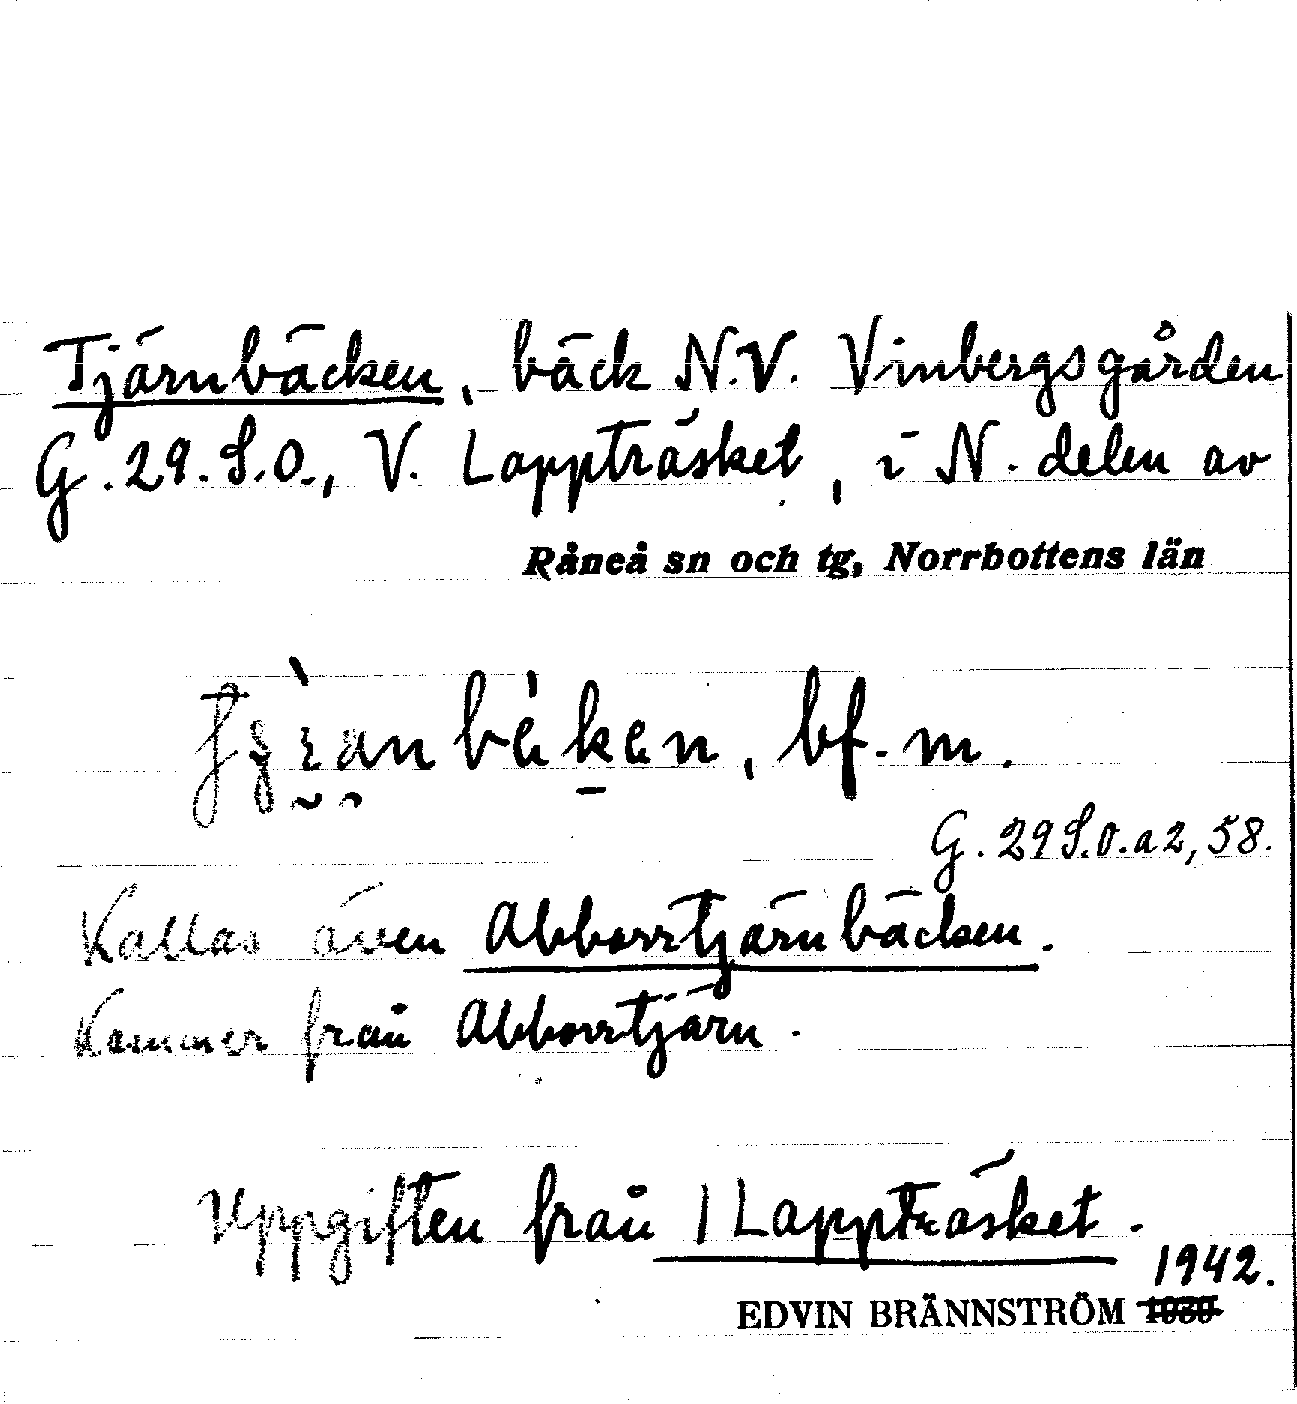 Tjärnbäcken, bäck N.V. Vinbergsgården
G. 29. S.O., V. Lappträsket, i N. delen av
Råneå sn och tg, Norrbottens län
bf. m.
G. 29 S.O. a 2, 58.
Kallas även Abborrtjärnbäcken.
Kommer från Abborrtjärn.
Uppgiften från 1 Lappträsket.
1942.
EDVIN BRÄNNSTRÖM 1930